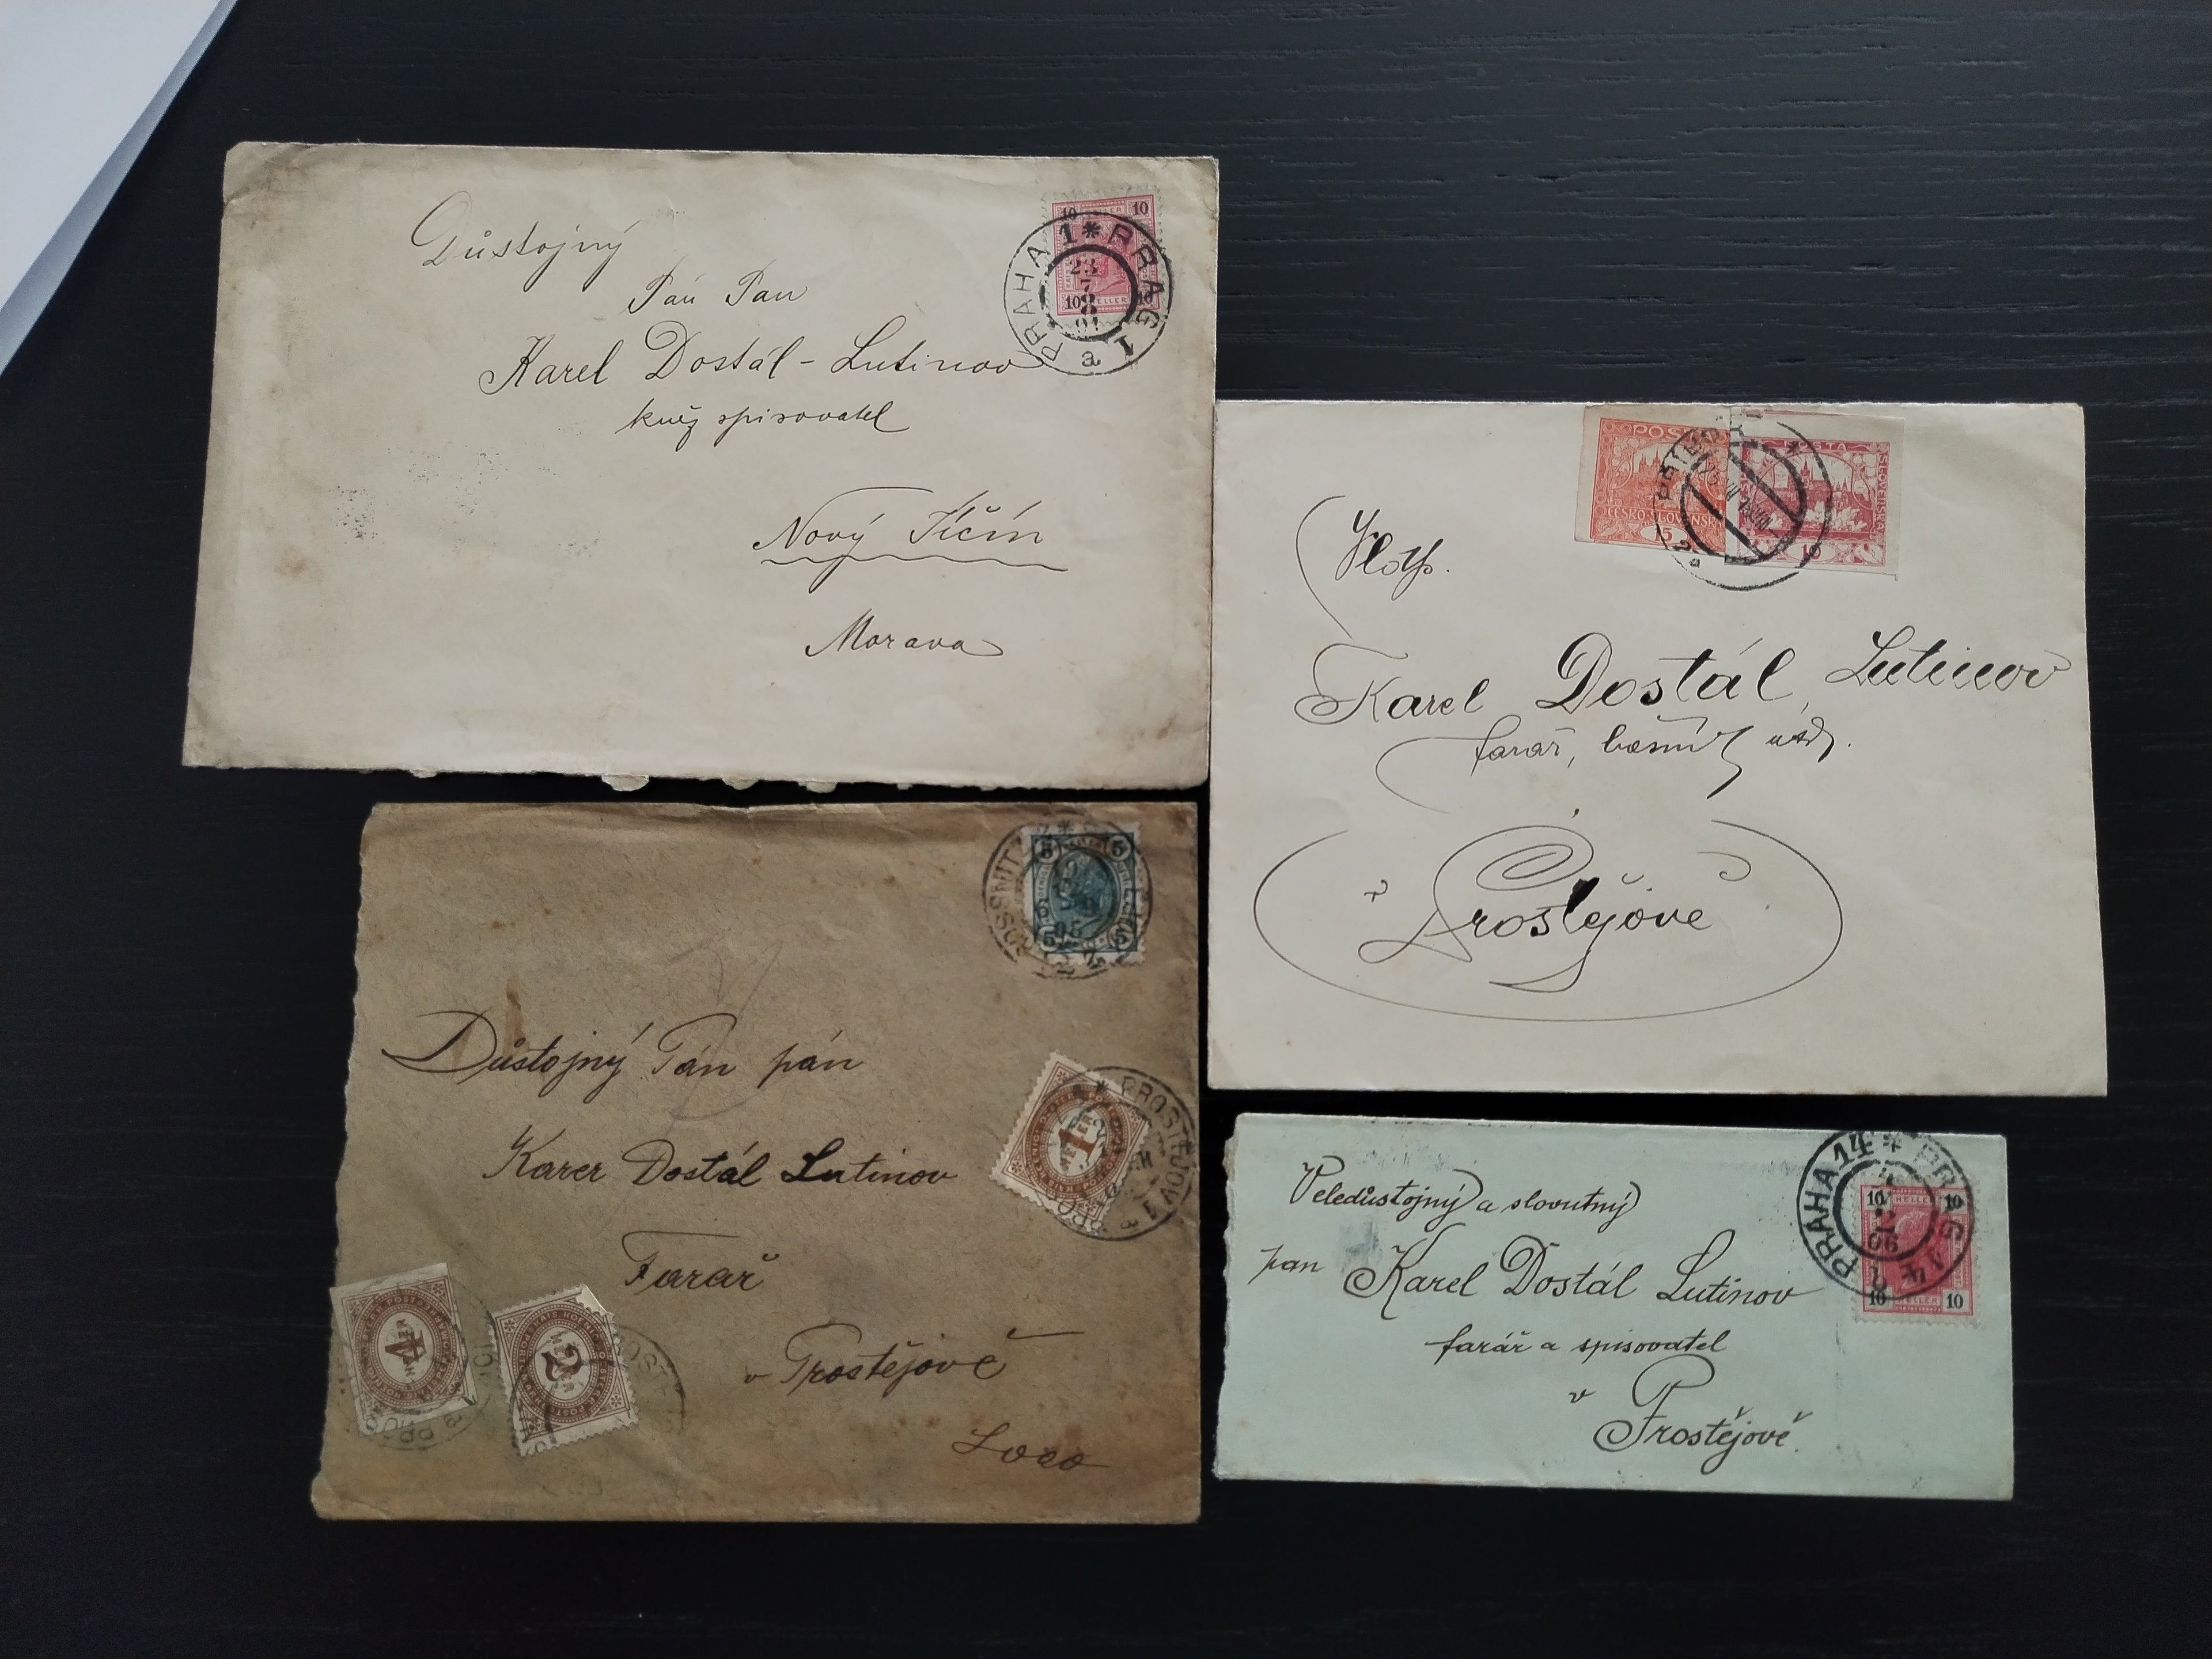 Důstojný
Pán Pan
Karel Dostál-Lutinov
kněz spisovatel
Nový Jičín
Morava
10 10
10 HELLER 10
PRAHA 1 * PRAG 1
23
7
8
01
a
Karel Dostál Lutinov
farář, básník
v
Prostějově
POSTA
ČESKO-SLOVENSKÁ
15
POSTA
SLOVENSKÁ
10
5 5
5 5
6
05
Důstojný Pán pán
Karer Dostál Lutinov
Farář
v Prostějově
Loco
1
HELLER
* PROSTĚJOV 1
4
2
Veledůstojný a slovutný
pan Karel Dostál Lutinov
farář a spisovatel
v
Prostějově.
PRAHA 14 * PRAG 14
2
06
10 HELLER 10
10 HELLER 10